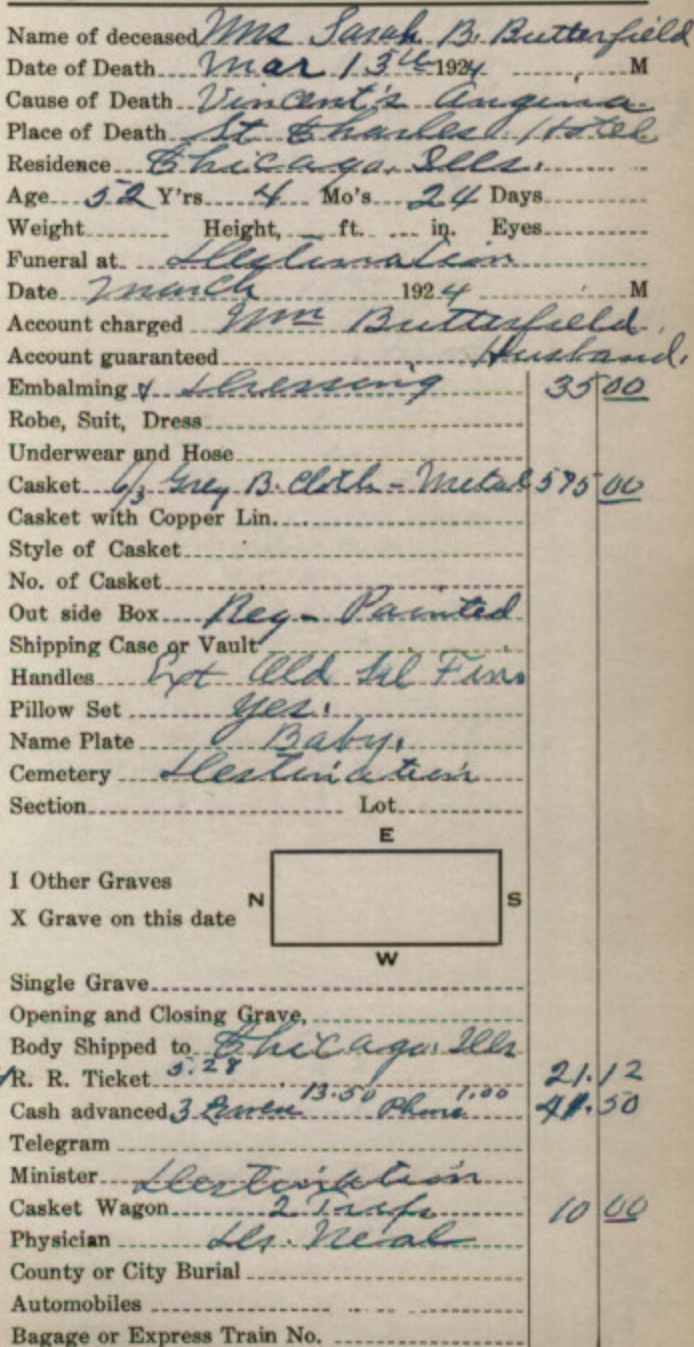 Name of deceased Mrs Sarah B. Butterfield
Date of Death Mar 13th 1924 M
Cause of Death Vincent's Angina
Place of Death St Charles Hotel
Residence Chicago, Ills.
Age 52 Y'rs 4 Mo's 24 Days
Weight Height, ft. in. Eyes
Funeral at Destination
Date March 1924 M
Account charged Wm Butterfield
Account guaranteed Husband.
Embalming & Dressing 35 00
Robe, Suit, Dress
Underwear and Hose
Casket 6/3 Grey B. Cloth - Metal 575 00
Casket with Copper Lin.
Style of Casket
No. of Casket
Out side Box Reg - Painted
Shipping Case or Vault
Handles Ext Old Sil Fins
Pillow Set yes.
Name Plate Baby.
Cemetery Destination
Section Lot
E
I Other Graves
N S
X Grave on this date
W
Single Grave
Opening and Closing Grave,
Body Shipped to Chicago, Ills
R. R. Ticket 5.28 21.12
Cash advanced 3 13.50 Phone 1.00 41.50
Telegram
Minister Destination
Casket Wagon 2 Trips 10 00
Physician Dr. Neal
County or City Burial
Automobiles
Bagage or Express Train No.